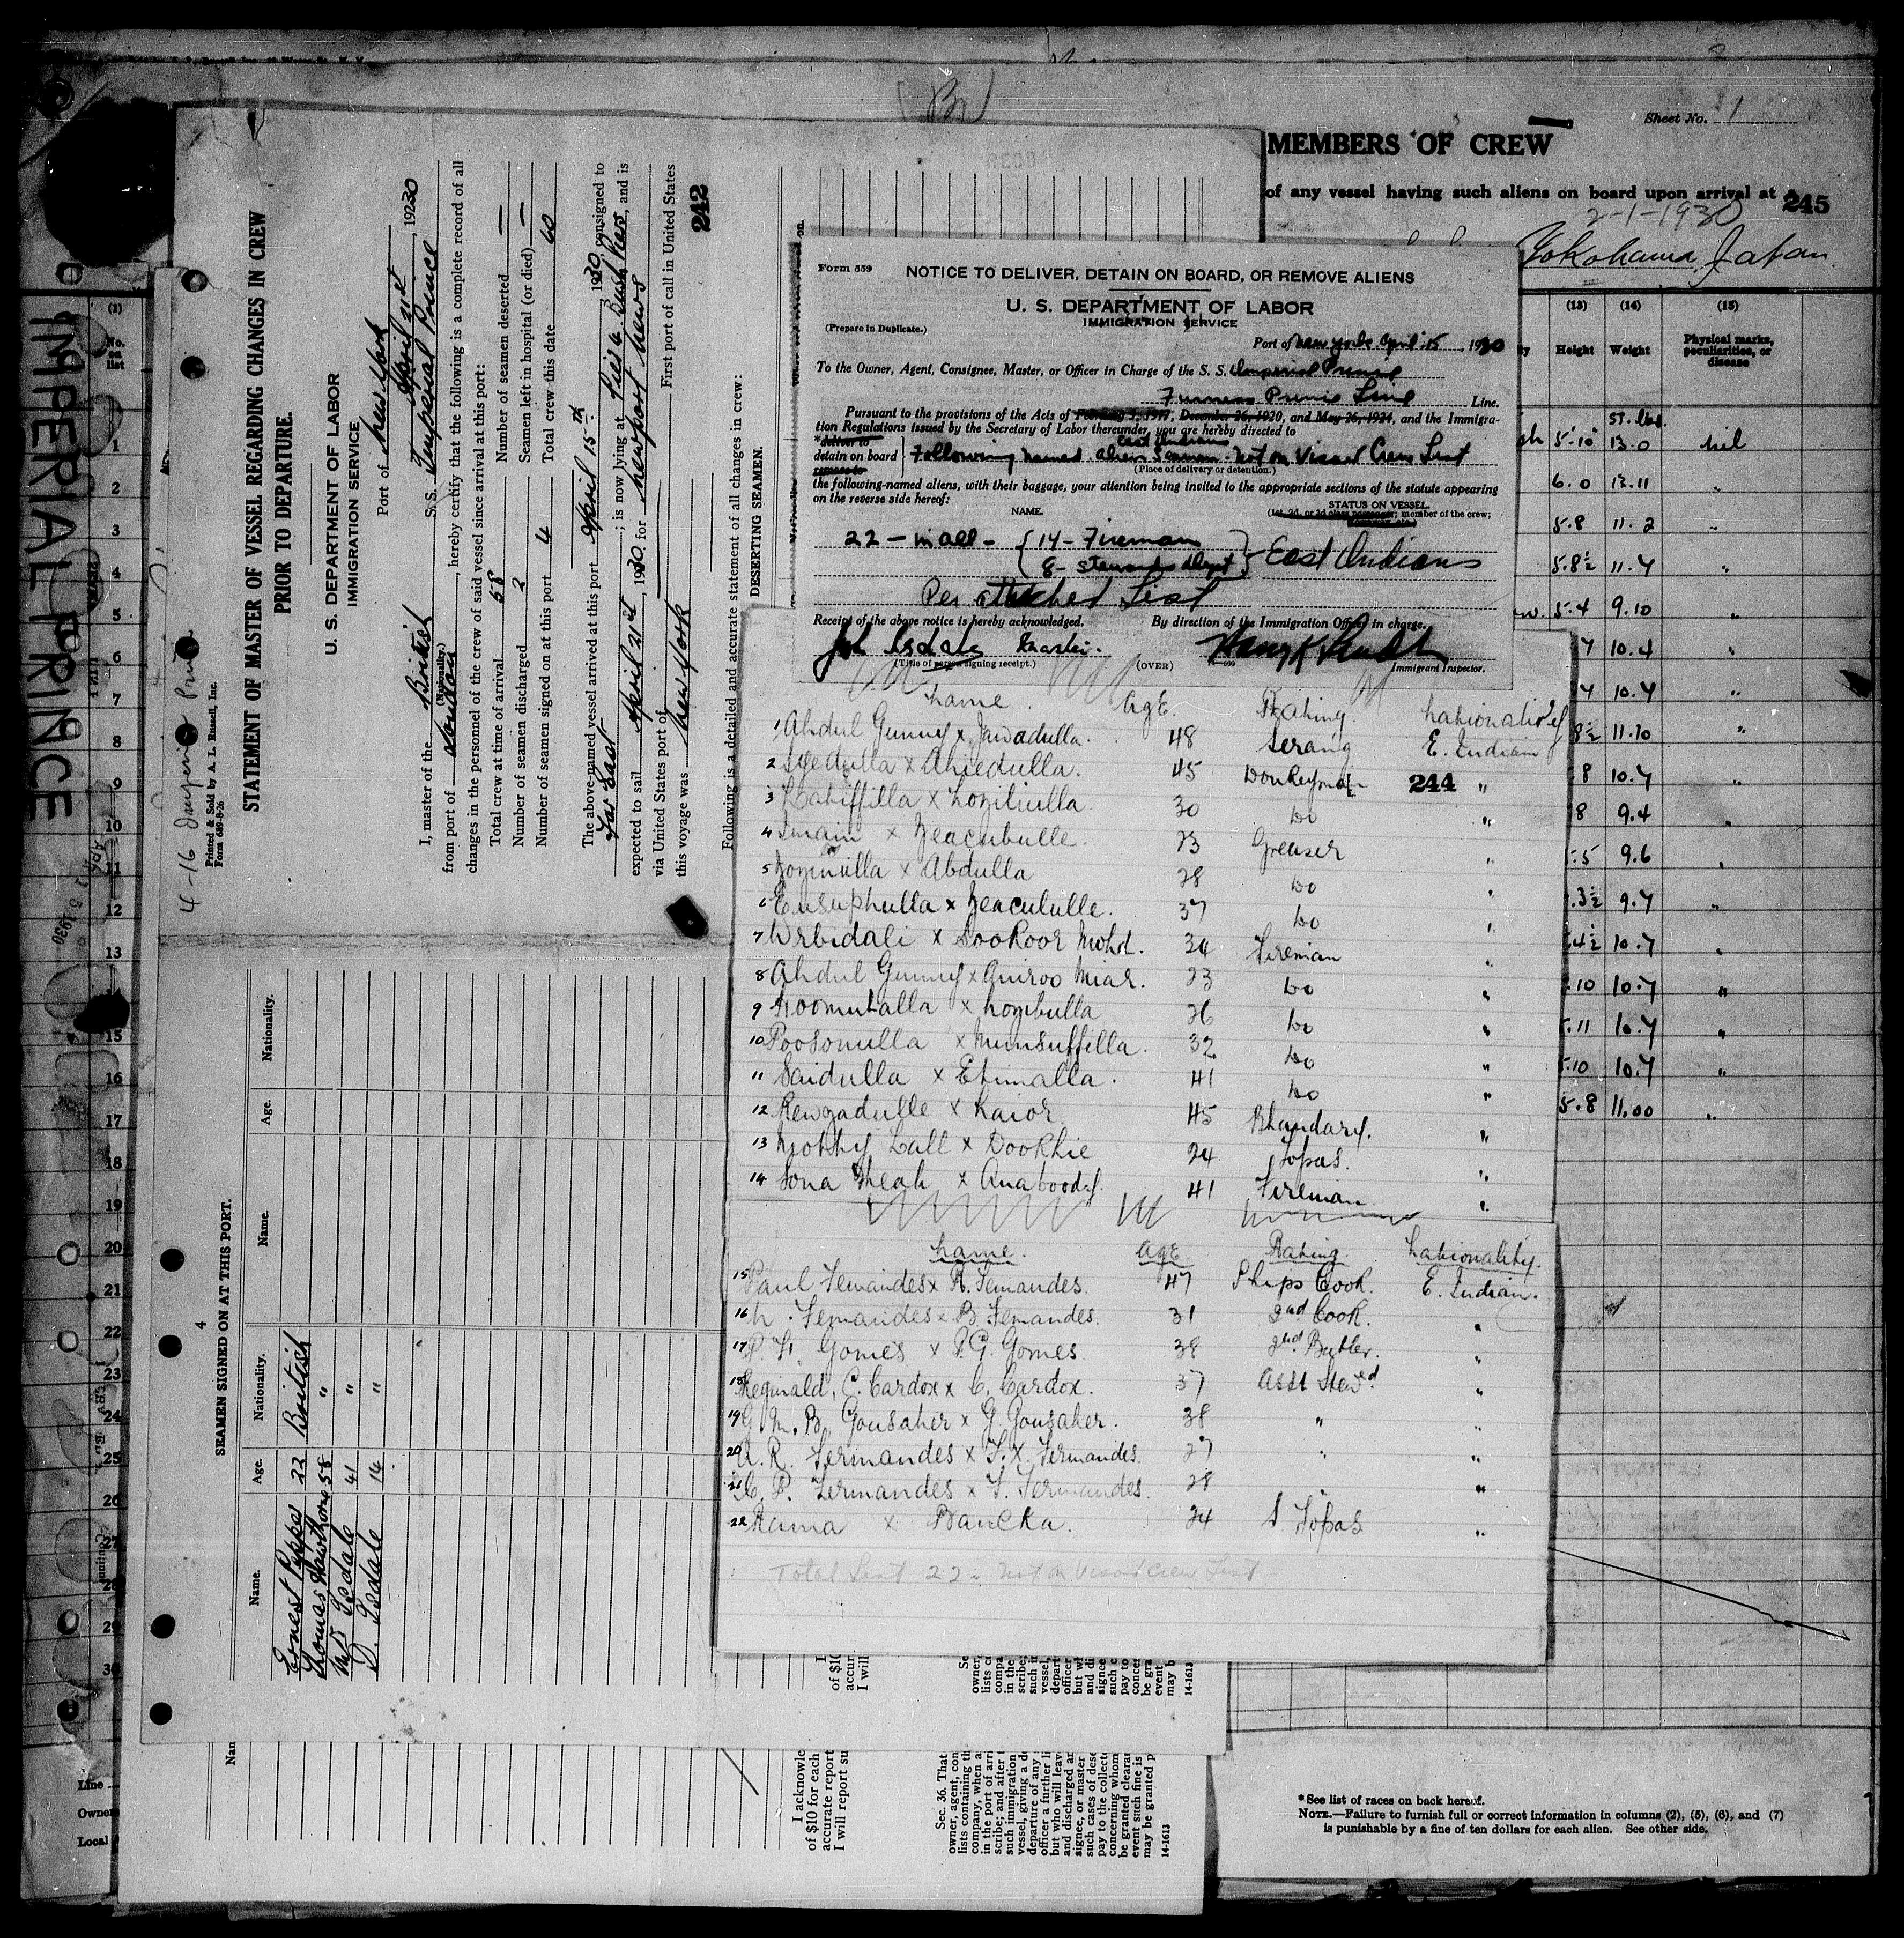 (Br)
Sheet No. 1
MEMBERS OF CREW
of any vessel having such aliens on board upon arrival at
245
2-1-1930
Yokohama Japan
(13) (14) (15)
Height Weight Physical marks, peculiarities, or disease
ST. lbs.
5·10 13.0 nil
6.0 13.11 "
5.8 11.2 "
5.8½ 11.7 "
5.4 9.10 "
10.4 "
10.7 "
11.10 "
8 10.7 "
8 9.4 "
5 9.6 "
3½ 9.7 "
4½ 10.7 "
10 10.7 "
5.11 10.7 "
5.10 10.7 "
5.8 11.00 "
*See list of races on back hereof.
NOTE.—Failure to furnish full or correct information in columns (2), (5), (6), and (7)
is punishable by a fine of ten dollars for each alien. See other side.
IMPERIAL PRINCE
(1)
No. on list
1
2
3
4
5
6
7
8
9
10
11
12
13
14
15
16
17
18
19
20
21
22
23
24
25
26
27
28
29
30
Line
Owner
Local
APR 15 1930
4-16 Imperial Prince
Printed & Sold by A. L. Russell, Inc.
Form 689-8-26
STATEMENT OF MASTER OF VESSEL REGARDING CHANGES IN CREW
PRIOR TO DEPARTURE.
U. S. DEPARTMENT OF LABOR
IMMIGRATION SERVICE
Port of New York
April 21st, 1930
I, master of the British S. S. Imperial Prince
(Nationality.)
from port of London, hereby certify that the following is a complete record of all
changes in the personnel of the crew of said vessel since arrival at this port:
Total crew at time of arrival 58 Number of seamen deserted —
Number of seamen discharged 2 Seamen left in hospital (or died) —
Number of seamen signed on at this port 4 Total crew this date 60
The above-named vessel arrived at this port April 15th, 1930 consigned to
Far East; is now lying at Pier 4 Bush Piers, and is
expected to sail April 21st, 1930 for Newport News
via United States port of First port of call in United States
this voyage was New York
242
Following is a detailed and accurate statement of all changes in crew:
DESERTING SEAMEN.
Name. Age. Nationality.
4
SEAMEN SIGNED ON AT THIS PORT.
Name. Age. Nationality.
Ernest Pepper 22 British
Thomas Hawthorn 58 "
Mrs Isdale 41 "
D. Isdale 14 "
Form 559
NOTICE TO DELIVER, DETAIN ON BOARD, OR REMOVE ALIENS
U. S. DEPARTMENT OF LABOR
IMMIGRATION SERVICE
(Prepare in Duplicate.)
Port of New York April 15, 1930
To the Owner, Agent, Consignee, Master, or Officer in Charge of the S. S. Imperial Prince
Furness Prince Line Line.
Pursuant to the provisions of the Acts of February 5, 1917, December 26, 1920, and May 26, 1924, and the Immigra-
tion Regulations issued by the Secretary of Labor thereunder, you are hereby directed to
*deliver to
detain on board
remove to
East Indians
Following named alien Seamen not on Vissel Crew List
(Place of delivery or detention.)
the following-named aliens, with their baggage, your attention being invited to the appropriate sections of the statute appearing
on the reverse side hereof:
NAME. STATUS ON VESSEL.
(1st, 2d, or 3d class passenger; member of the crew; stowaway, etc.)
22 - in all - { 14 - Fireman
8 - stewards dept } East Indians
Per attached List
Receipt of the above notice is hereby acknowledged. By direction of the Immigration Officer in charge.
Isdale Master.
(Title of person signing receipt.) (OVER) Immigrant Inspector.
Name. Age. Rating. Nationality
1 Abdul Gunny x Jawadulla. 48 Serang E. Indian
2 Syedulla x Ahiedulla. 45 Donkeyman "
244
3 Latiffilla x 30 Do "
4 Ismain x 23 Greaser "
5 x Abdulla 28 Do "
6 Eusuphulla x 37 Do "
7 Urbidali x Sookoor Mohd. 34 Fireman "
8 Abdul Gunny x Amroo Miar. 23 Do "
9 x 26 Do "
10 Poosonulla x Munsuffilla. 32 Do "
11 Saidulla x Etimalla. 41 Do "
12 Rewzadulle x Kaior. 45 Bhandary. "
13 Mothy Lall x Dookhie 24 Topas. "
14 Sona Meah x Anaboody. 41 Fireman "
Name. Age Rating. Nationality.
15 Paul Fernandes x R. Fernandes. 47 Ships Cook. E. Indian.
16 N. Fernandes x B. Fernandes. 31 2nd Cook. "
17 P. F. Gomes x P. G. Gomes. 38 2nd Butler. "
18 Reginald, C. Cardox x C. Cardox. 37 Asst Stewd "
19 G. M. B. Gonsaher x G. Gonsaher. 38 " "
20 A. R. Fernandes x F. X. Fernandes. 27 " "
21 C. P. Fernandes x F. Fernandes. 28 " "
22 Rama x Bancka. 24 S. Topas "
Total List 22 - Not on Vissel Crew List
I acknowle
of $10 for each
accurate report
I will report su
Sec. 36. That
owner, agent, con
lists containing th
company, when a
in the port of arri
scribe; and after t
such immigration
vessel, giving a de
departure of any
officer a further li
but who will leave
and discharged an
signee, or master
such cases of dese
pay to the collecto
concerning whom
be granted clearan
event such fine is
may be granted p
14-1613